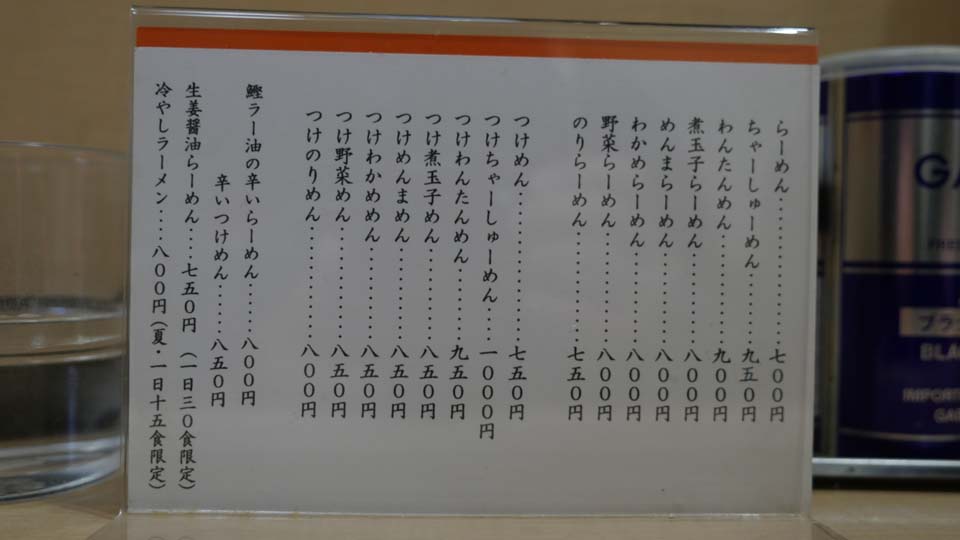 らーめん.....................七００円
ちゃーしゅーめん........九五０円
わんたんめん..............九００円
煮玉子らーめん...........八００円
めんまらーめん...........八００円
わかめらーめん...........八００円
野菜らーめん..............八００円
のりらーめん..............七五０円
つけめん.....................七五０円
つけちゃーしゅーめん....一０００円
つけわんたんめん........九五０円
つけ煮玉子めん...........八五０円
つけめんまめん...........八五０円
つけわかめめん...........八五０円
つけ野菜めん..............八五０円
つけのりめん..............八００円
鰹ラー油の辛いらーめん......八００円
辛いつけめん......八五０円
生姜醤油らーめん....七五０円（一日三０食限定）
冷やしラーメン....八００円（夏・一日十五食限定）
GA
ブラ
BLA
IMPORTE
GA